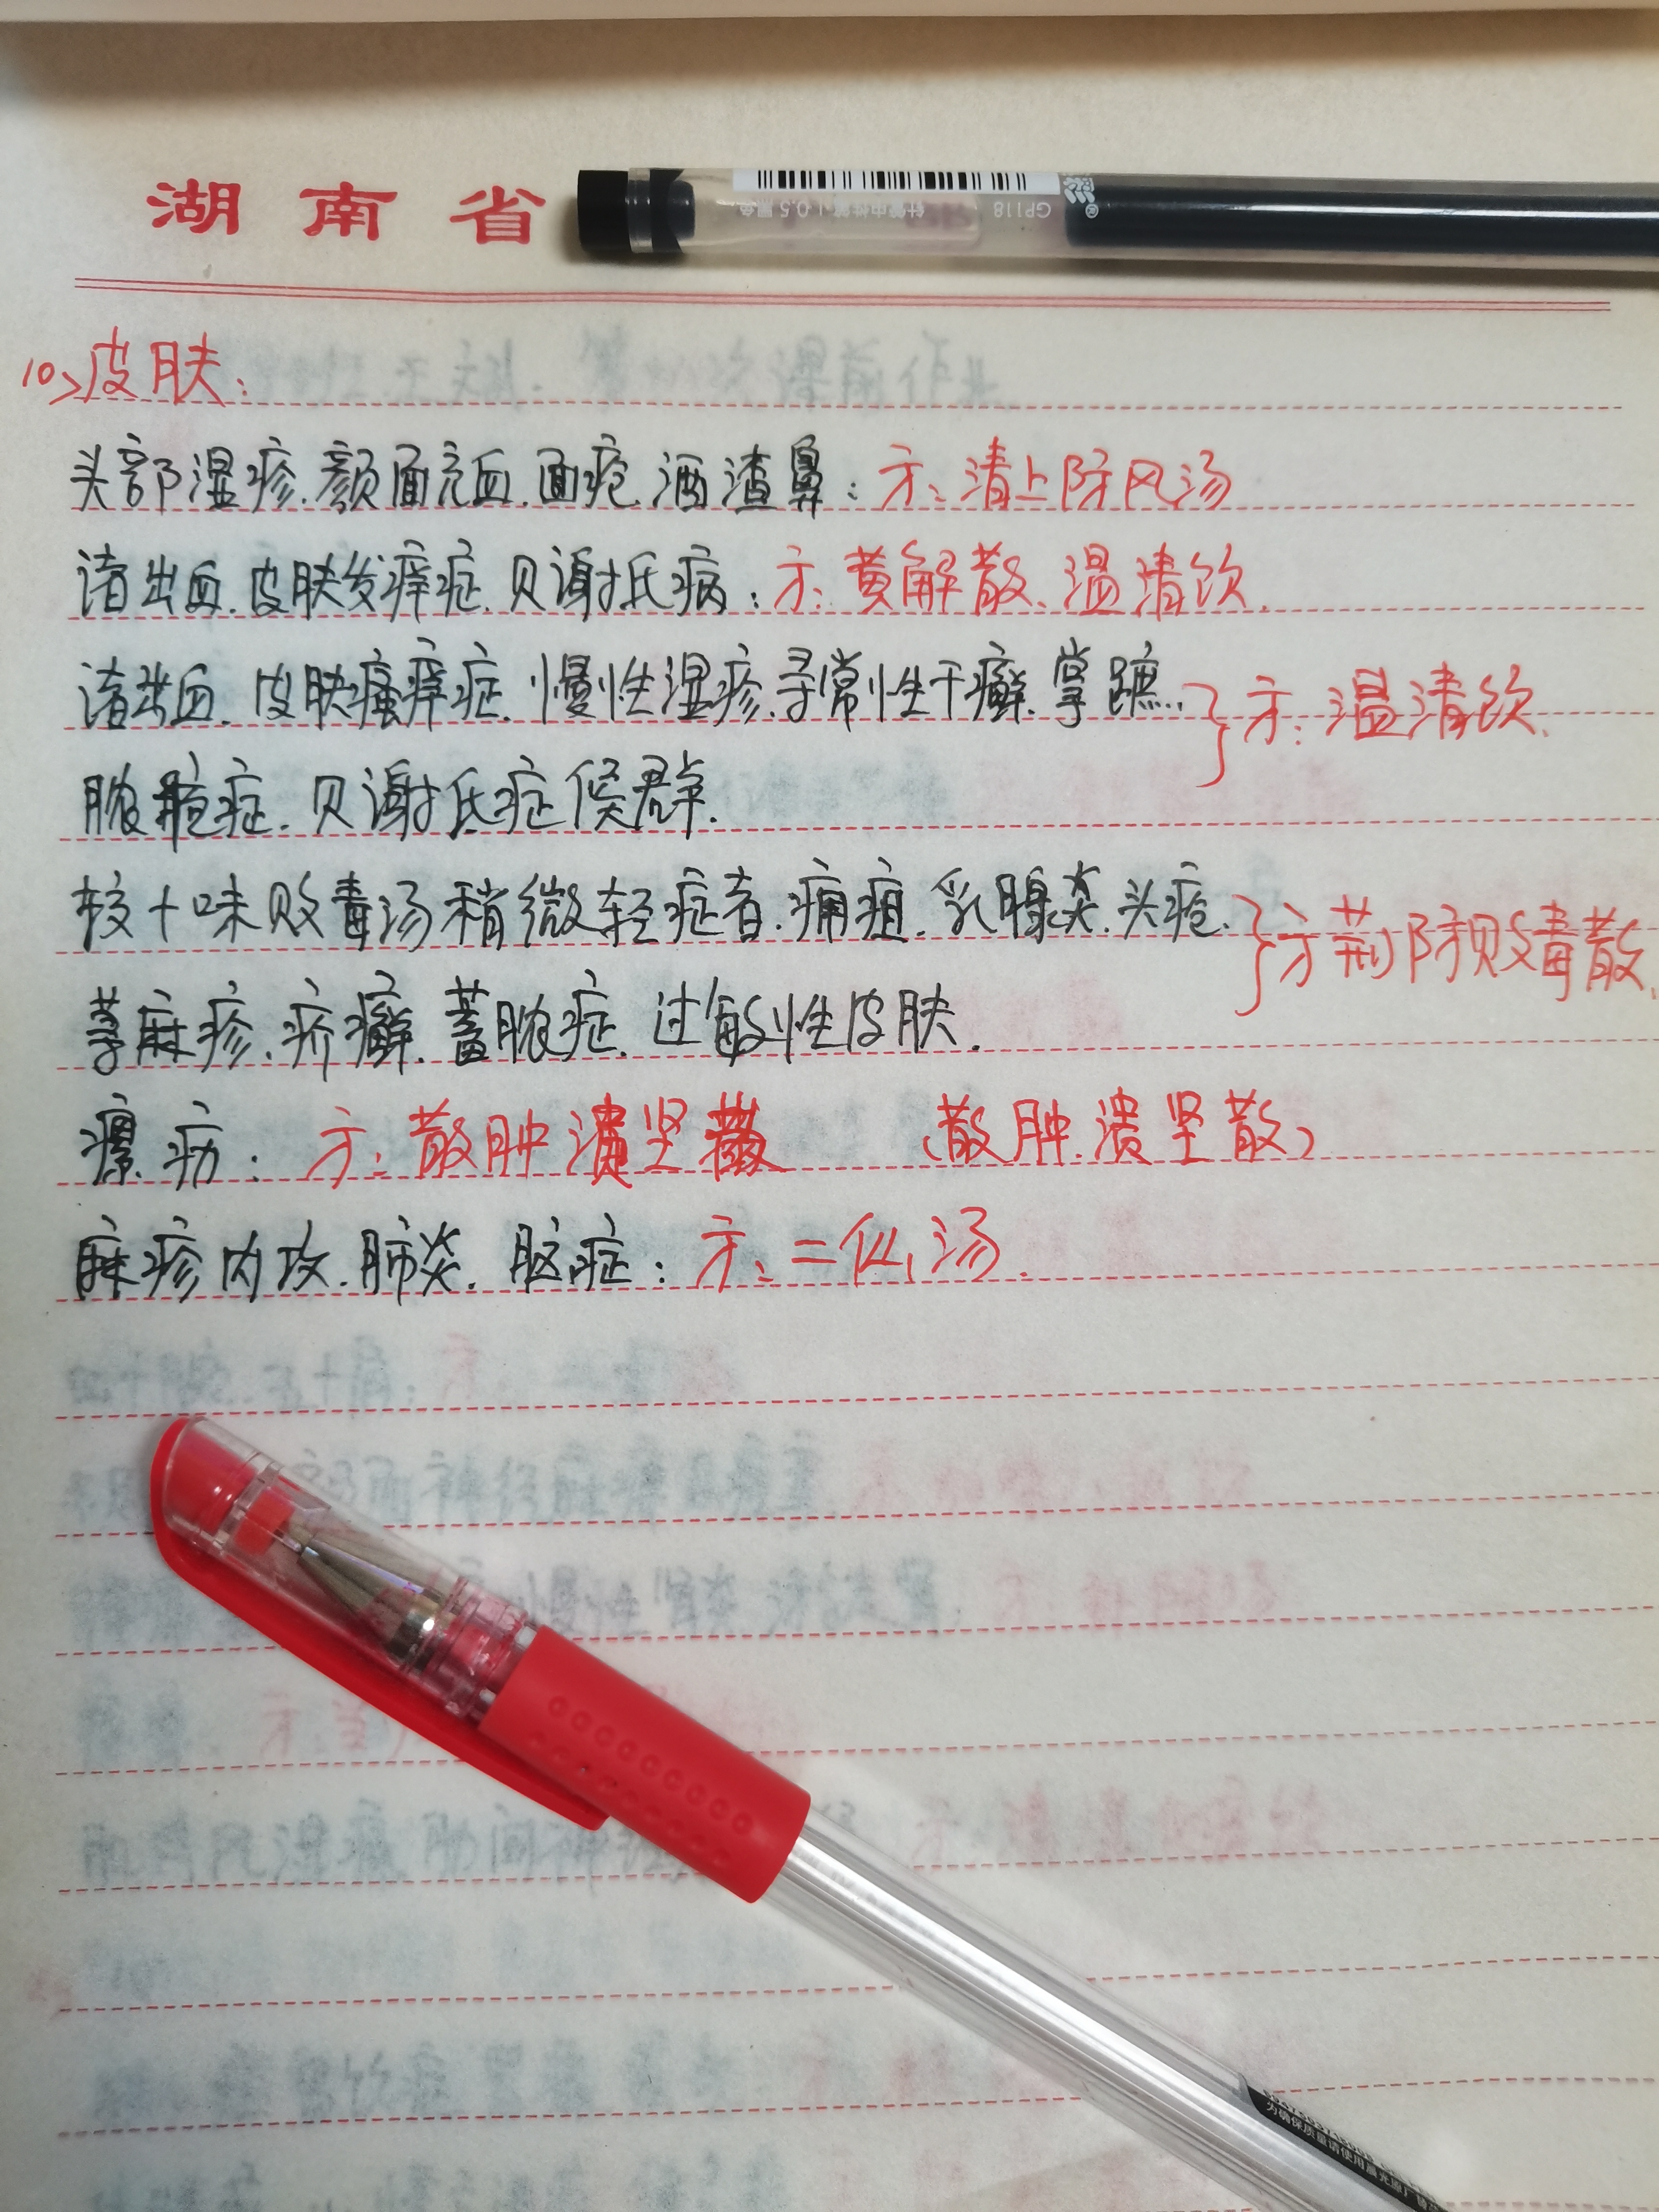 湖南省
GP118
10、皮肤:
头部湿疹.颜面充血.面疱.酒渣鼻:方:清上防风汤
诸出血.皮肤发痒症.贝谢抵病:方:黄解散、温清饮.
诸出血.皮肤瘙痒症.慢性湿疹.寻常性干癣.掌蹠..}方:温清饮.
脓疱症.贝谢抵症候群.
较十味败毒汤稍微轻症者.痈疽.乳腺炎.头疮.}方荆防败毒散.
荨麻疹.疥癣.蓄脓症.过敏性皮肤.
瘰疬:方:散肿溃坚散 (散肿溃坚散)
麻疹内攻.肺炎.脑症:方:二仙汤.